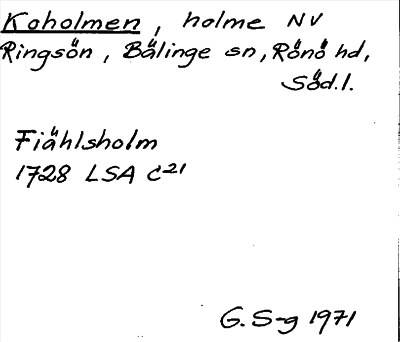 Koholmen, holme NV
Ringsön, Bälinge sn, Rönö hd,
Söd.l.
Fiählsholm
1728 LSA C²¹
G. S-g 1971